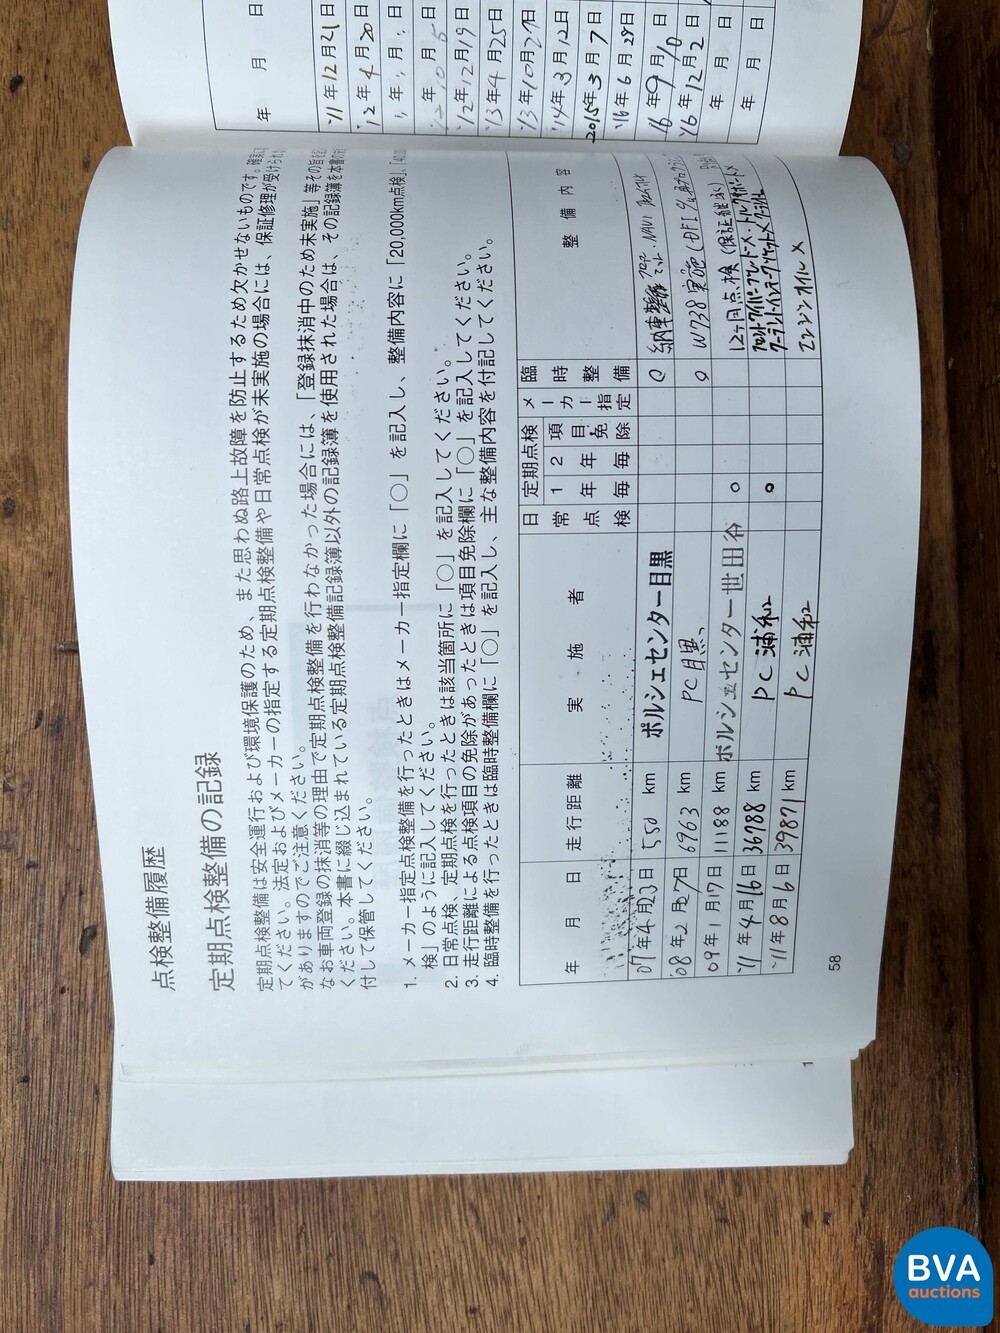 点検整備履歴
定期点検整備の記録
定期点検整備は安全運行および環境保護のため、また思わぬ路上故障を防止するため欠かせないものです。確実に
てください。法定およびメーカーの指定する定期点検整備や日常点検が未実施の場合には、保証修理が受けられな
がありますのでご注意ください。
なお車両登録の抹消等の理由で定期点検整備を行わなかった場合には、「登録抹消中のため未実施」等その旨を
ください。本書に綴じ込まれている定期点検整備記録簿以外の記録簿を使用された場合は、その記録簿を本書の
付して保管してください。
1. メーカー指定点検整備を行ったときはメーカー指定欄に「○」を記入し、整備内容に「20,000km点検」、「40,00
検」のように記入してください。
2. 日常点検、定期点検を行ったときは該当箇所に「○」を記入してください。
3. 走行距離による点検項目の免除があったときは項目免除欄に「○」を記入してください。
4. 臨時整備を行ったときは臨時整備欄に「○」を記入し、主な整備内容を付記してください。
年 月 日 走行距離 実施者 日常点検 定期点検 1年毎 2年毎 項目免除 メーカー指定 臨時整備 整備内容
'07年4月23日 550 km ポルシェセンター目黒 ○ 納車整備 フロアマット・NAVI
'08年2月27日 6963 km PC目黒 ○ W738実施 (DFI
09年1月17日 11188 km ポルシェセンター世田谷 ○ 12ヶ月点検 (保証継承)
'11年4月16日 36788 km PC浦和 ○
'11年8月6日 39871 km PC浦和 エンジンオイル×
58
年 月 日
'11年12月21日
'12年4月20日
年 月 日
年10月5日
'12年12月19日
'13年4月25日
'13年10月27日
'14年3月12日
2015年3月7日
'16年6月29日
16年9月10日
'16年12月2日
年 月 日
年 月 日
BVA
auctions